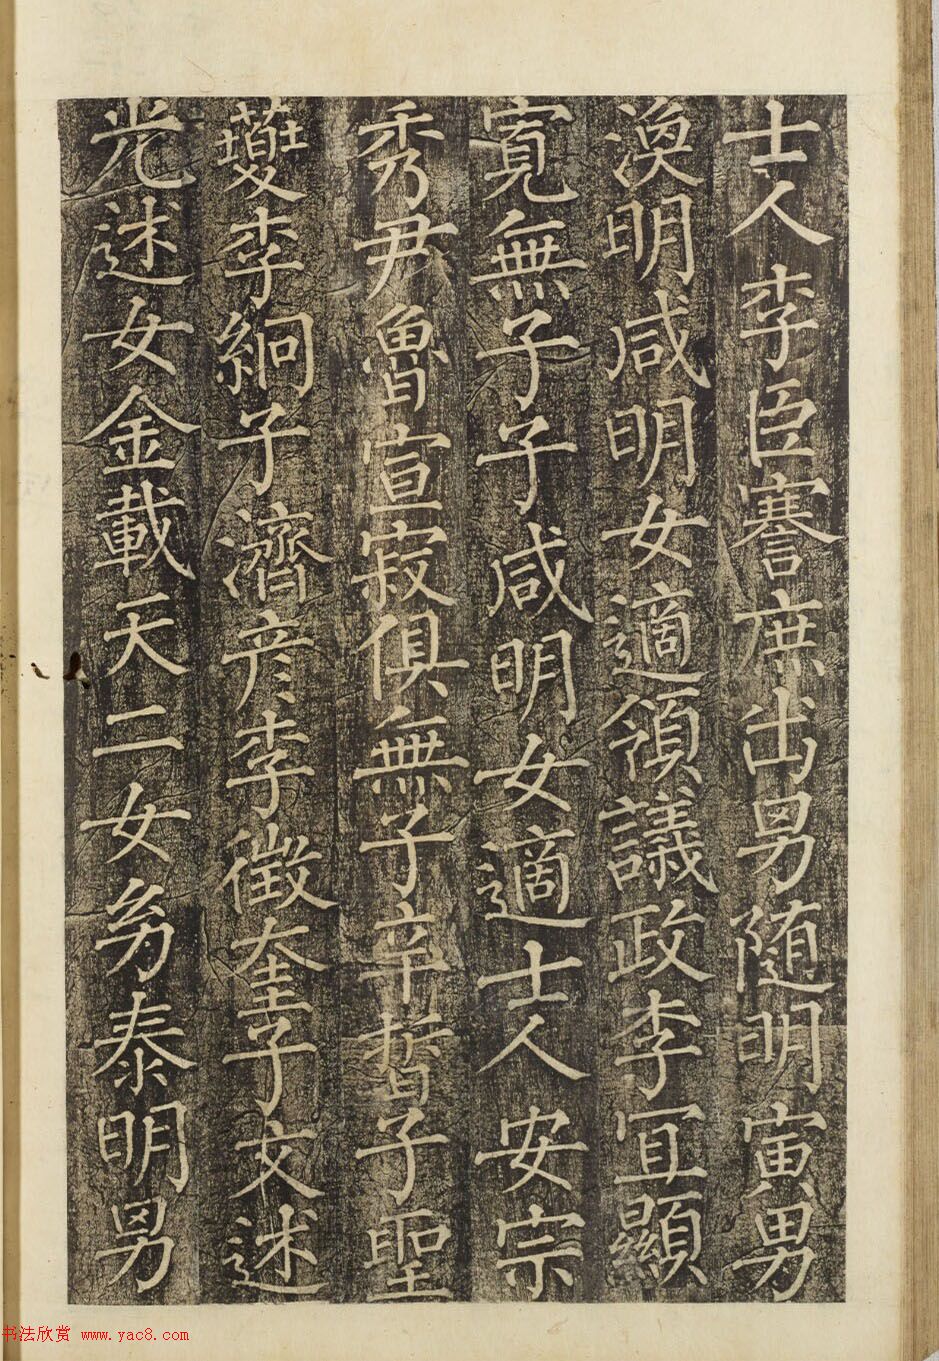 士人李臣謇庶出男随明寅男
渙明咸明女適領議政李宜顯
寬無子子咸明女適士人安宗
秀尹魯宣寂俱無子辛晳子聖
李絅子濟彦李徵奎子文述
光述女金載天二女幼泰明男
书法欣赏 www.yac8.com